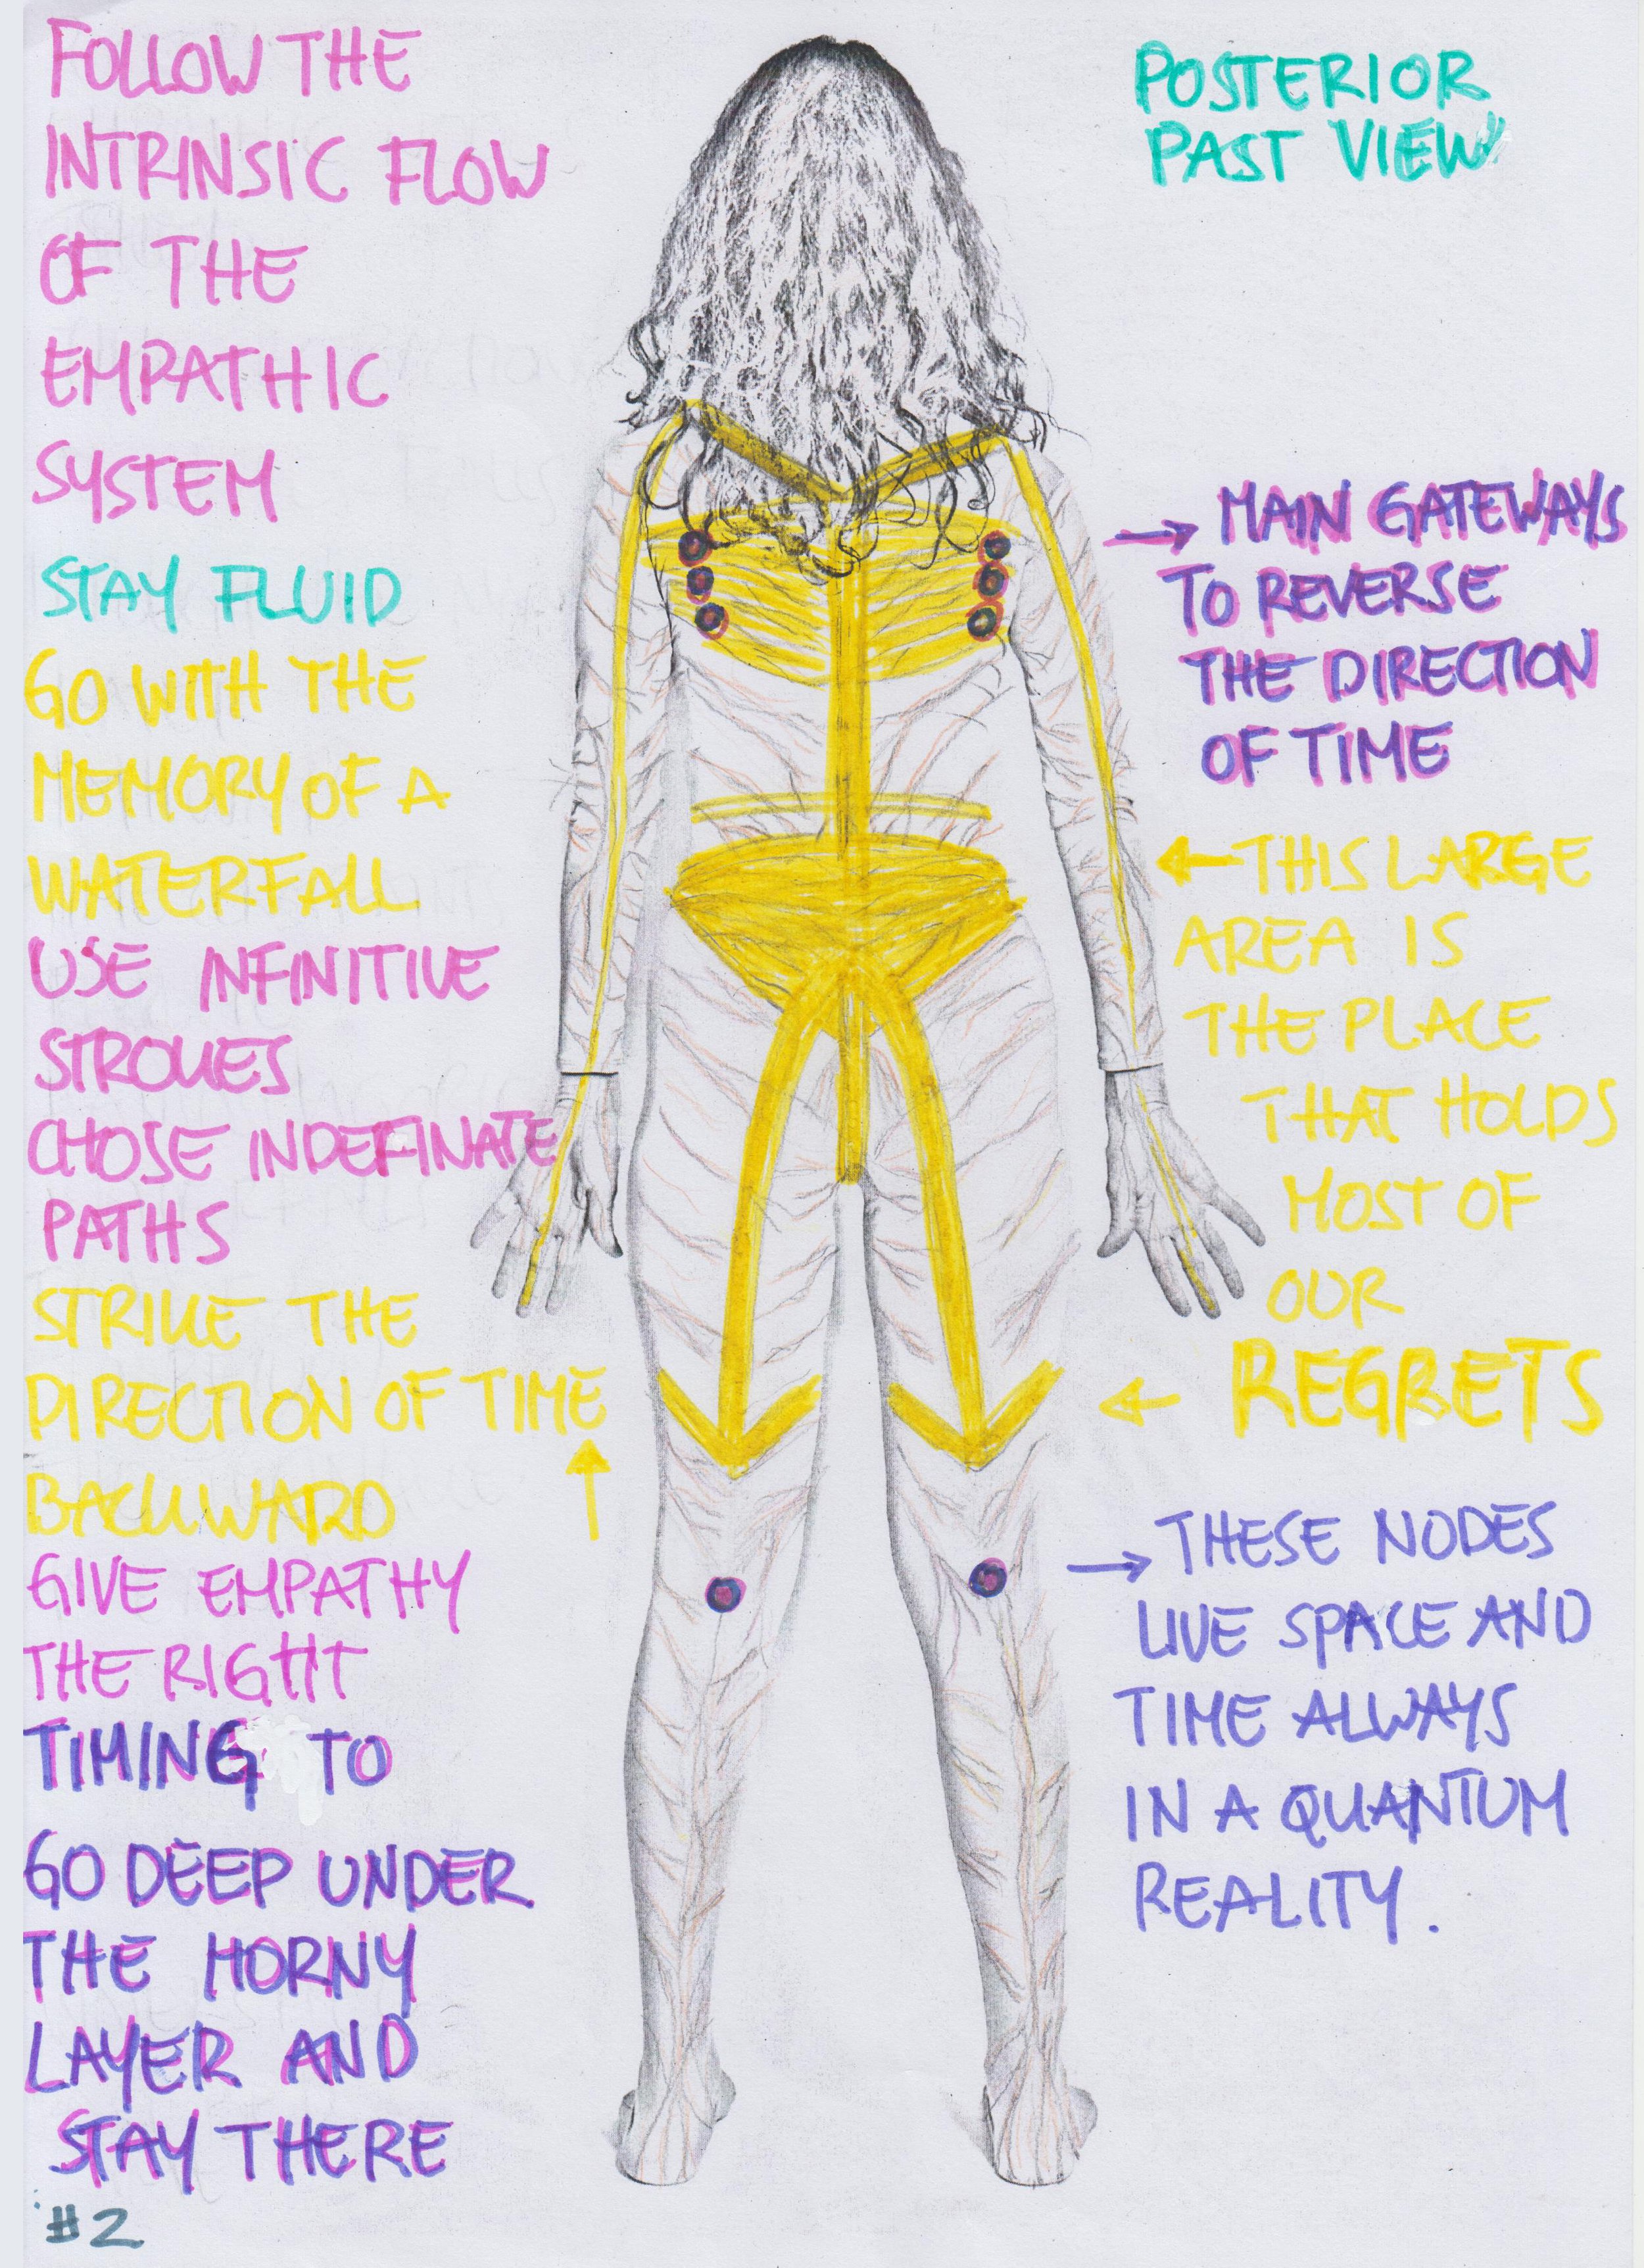 FOLLOW THE
INTRINSIC FLOW
OF THE
EMPATHIC
SYSTEM
STAY FLUID
GO WITH THE
MEMORY OF A
WATERFALL
USE INFINITIVE
STROKES
CHOSE INDEFINATE
PATHS
STRIKE THE
DIRECTION OF TIME
BACKWARD
GIVE EMPATHY
THE RIGHT
TIMING TO
GO DEEP UNDER
THE HORNY
LAYER AND
STAY THERE
#2
POSTERIOR
PAST VIEW
→ MAIN GATEWAYS
TO REVERSE
THE DIRECTION
OF TIME
← THIS LARGE
AREA IS
THE PLACE
THAT HOLDS
MOST OF
OUR
← REGRETS
→ THESE NODES
LIVE SPACE AND
TIME ALWAYS
IN A QUANTUM
REALITY.